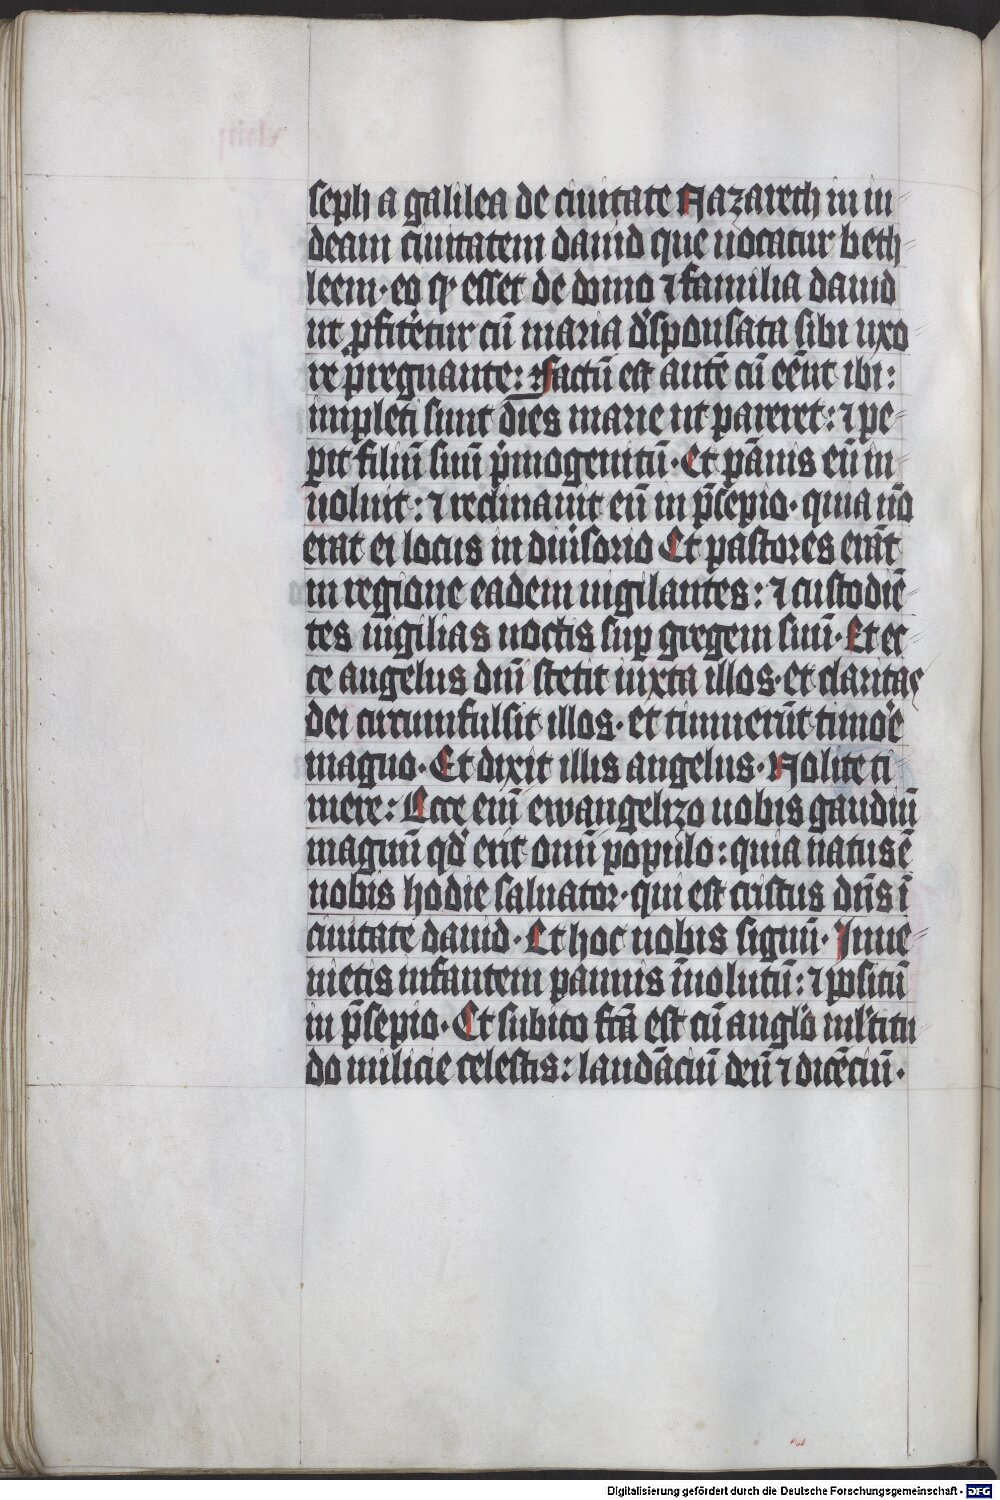 seph a galilea de ciuitate Nazareth in iu
deam ciuitatem dauid que uocatur beth
leem· eo ꝙ esset de domo ⁊ familia dauid
ut ꝓfiteretur cū maria dsponsata sibi uxo
re pregnante: Factū est autē cū eēnt ibi:
impleti sunt dies marie ut pareret: ⁊ pe
pit filiū suū pͥmogenitū· Et pānis eū in
uoluit: ⁊ reclinauit eū in p̄sepio· quia nō
erat ei locus in diuisorio Et pastores erāt
in regione eadem uigilantes: ⁊ custodiē
tes uigilias noctis suꝑ gregem suū· Et ec
ce angelus dn̄i stetit iuxta illos· et claritas
dei circumfulsit illos· et timuerūt timoͤe
magno· Et dixit illis angelus· Nolite ti
mere: Ecce enī ewangelizo uobis gaudiū
magnū qd erit om̄i populo: quia natus ē
uobis hodie saluator· qui est cristus dn̄s ī
ciuitate dauid· Et hoc uobis signū· Inue
nietis infantem pannis īuolutū: ⁊ ꝓositū
in p̄sepio· Et subito fc̄a est cū anglo ml'titu
do milicie celestis: laudāciū deū ⁊ dicēciū·
Digitalisierung gefördert durch die Deutsche Forschungsgemeinschaft - DFG